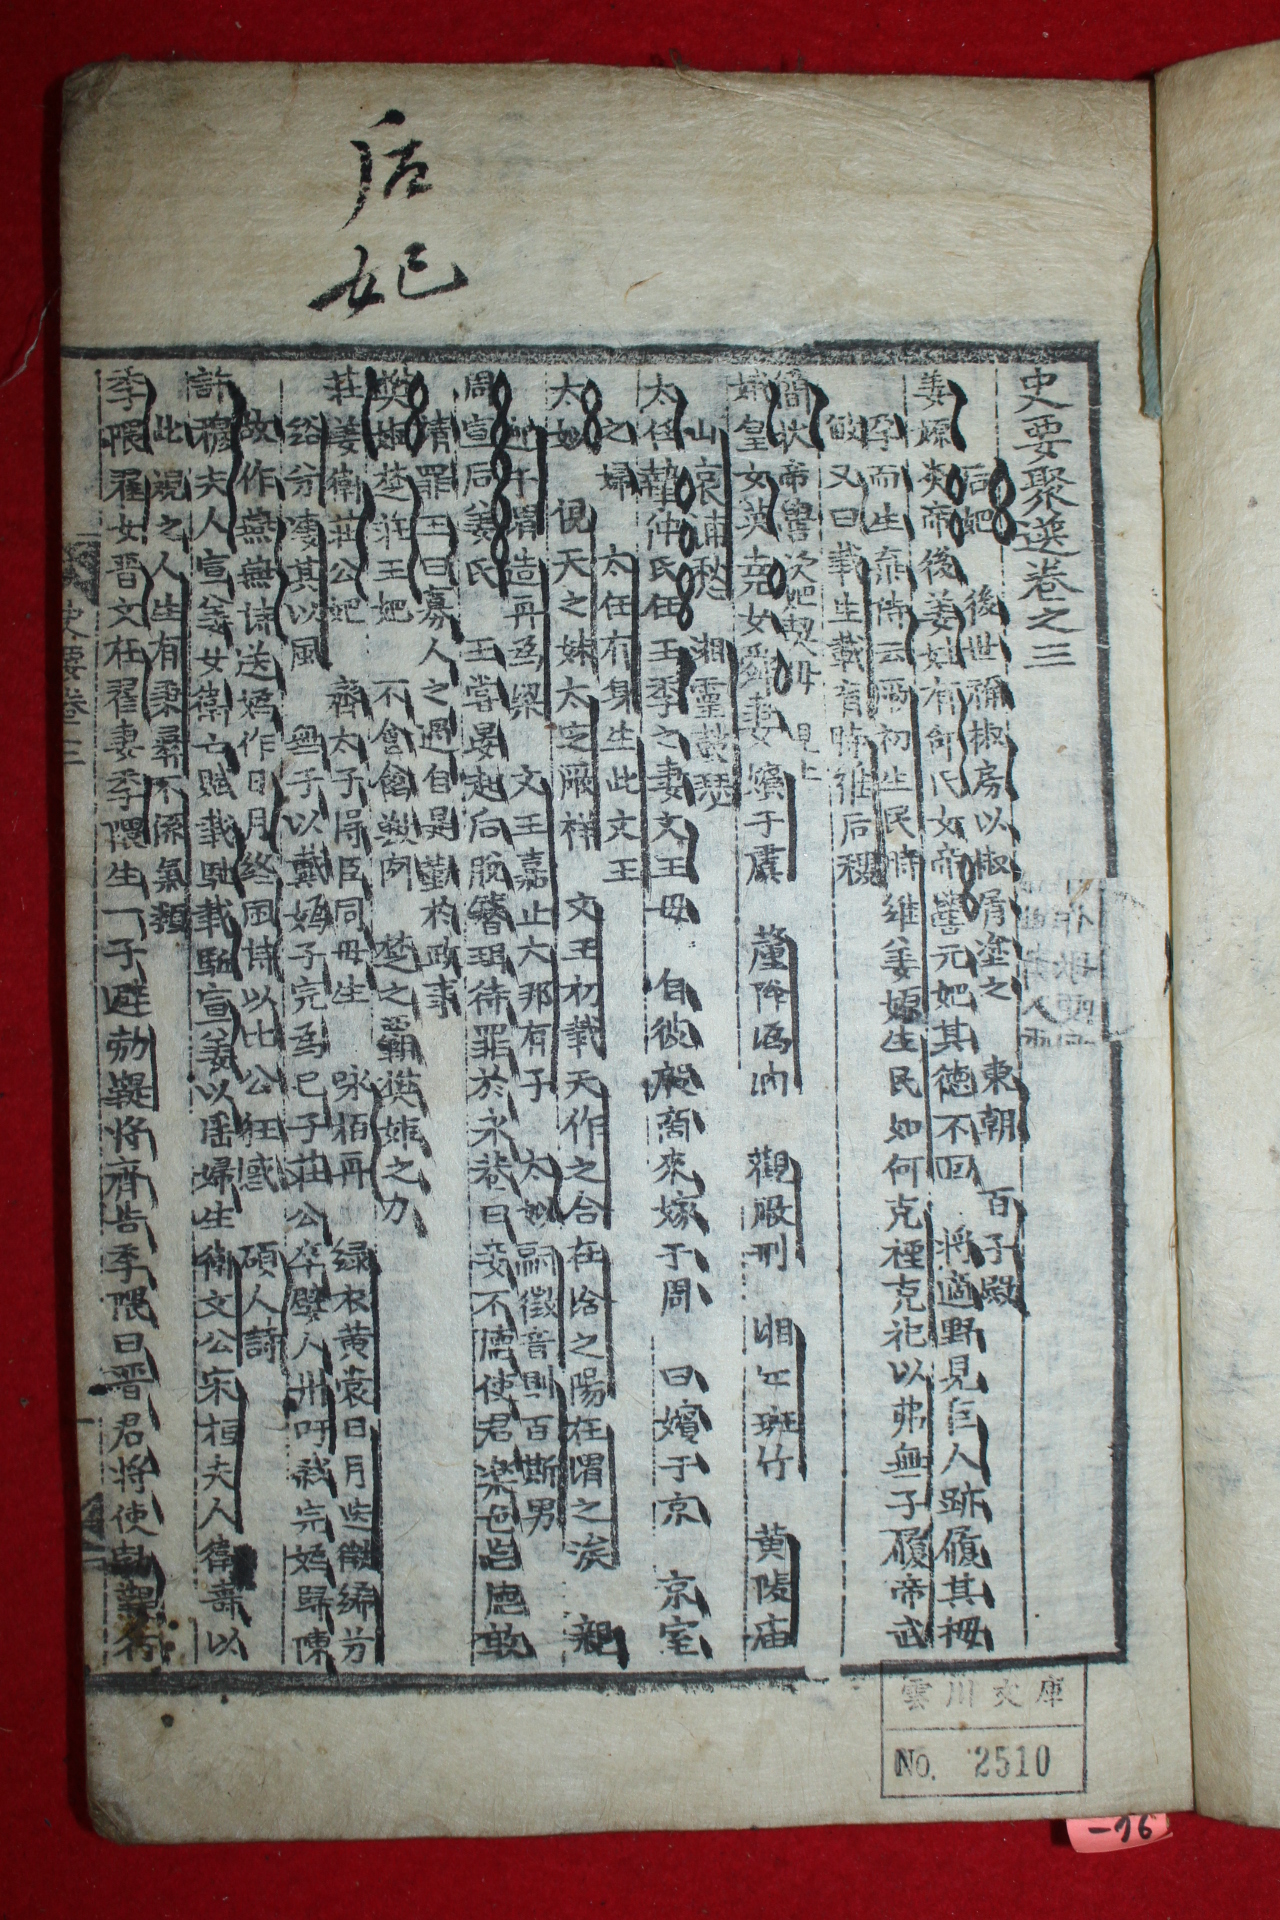 后妃
史要聚選卷之三
后妃 後世稱椒房以椒屑塗之 東朝 百子殿
姜嫄炎帝後姜姓有邰氏女帝嚳元妃其德不回 將適野見巨人跡履其拇
孕而生棄詩云厥初生民時維姜嫄生民如何克禋克祀以弗無子履帝武
敏又曰載生載育時維后稷
簡狄帝嚳次妃契母 見上
娥皇女英堯女舜妻嬪于虞 釐降嬀汭 觀厥刑 湘江斑竹 黃陵庙
山哀浦愁 湘靈鼓瑟
太任摯仲氏任王季之妻文王母 自彼殷商來嫁于周 曰嬪于京 京室
之婦 太任有身生此文王
太姒 俔天之妹太定厥祥 文王初載天作之合在洽之陽在渭之涘 親
迎于渭造舟爲梁 文王嘉止大邦有子 太姒嗣徽音則百斯男
周宣后姜氏 王嘗晏起后脫簪珥待罪於永巷曰妾不德使君樂色忘德敢
請罪王曰寡人之過自是勤於政事
樊姬楚莊王妃 不食禽獸肉 楚之霸樊姬之力
莊姜衛莊公妃 齊太子得臣同母生 咏栢舟 綠衣黃裳日月迭微絺兮
綌兮凄其以風 無子以戴嬀子完爲己子莊公卒嬖人州吁弑完嬀歸陳
故作燕燕詩送嬀作日月終風詩以比公狂惑 碩人詩
許穆夫人宣姜女衛亡賦載馳載驅宣姜以淫婦生衛文公宋桓夫人衛壽以
此觀之人生有秉彛不係氣類
季隗翟女晋文在翟妻季隗生一子避勃鞮將齊告季隗曰晋君將使勃鞮行
史要卷三
雲川文庫
No. 2510
-76